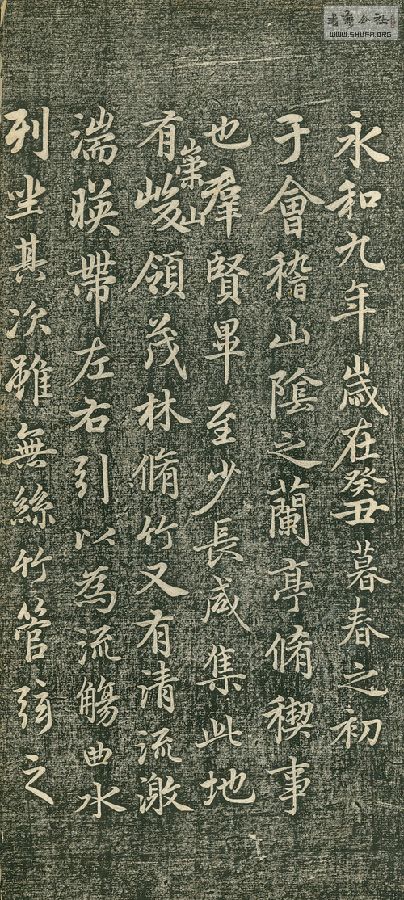 永和九年歲在癸丑暮春之初
于會稽山陰之蘭亭脩稧事
也羣賢畢至少長咸集此地
有崇山峻領茂林脩竹又有清流激
湍暎帶左右引以為流觴曲水
列坐其次雖無絲竹管弦之
WWW.SHUFA.ORG